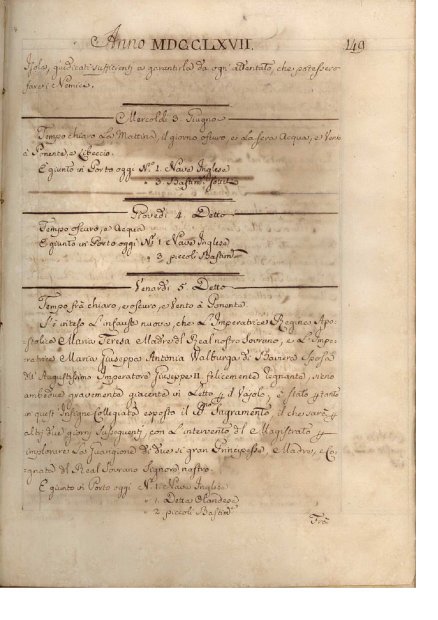 Anno MDCCLXVII. 149
Isola, giudicati sufficienti a garantirla da ogni attentato, che potessero
fare i Nemici.
Mercoldì 3. Giugno
Tempo chiaro la Mattina, il giorno oscuro, e la sera Acqua, e Vento
à Ponente, e Libeccio.
È giunto in Porto oggi N.º 1. Nave Inglese
3. Bastim.ti
Giovedì 4. Detto
Tempo oscuro, e Acqua
È giunto in Porto oggi N.º 1. Nave Inglese
3. piccoli Bastim.ti
Venardì 5. Detto
Tempo frà chiaro, e oscuro, e Vento à Ponente
S'è inteso l'infausta nuova, che l'Imperatrice Regina Apo-
stolica Maria Teresa Madre del Real nostro Sovrano, e l'Impe-
ratrice Maria Giuseppa Antonia Walburga di Baviera Sposa
dell' Augustissimo Imperatore Giuseppe II. felicemente regnante, siano
ambedue gravemente giacenti in Letto p il Vajolo, è stato p tanto
in quest' Insigne Collegiata esposto il Sagramento, il che sarà p
altri due giorni susseguenti, con l'intervento del Magistrato p
implorare la guarigione di due sì gran Principesse, Madre, e Co-
gnata del Real Sovrano Signore nostro.
È giunto in Porto oggi N.º 1. Nave Inglese
1. Detta Olandese
2. piccoli Bastim.ti
Frà